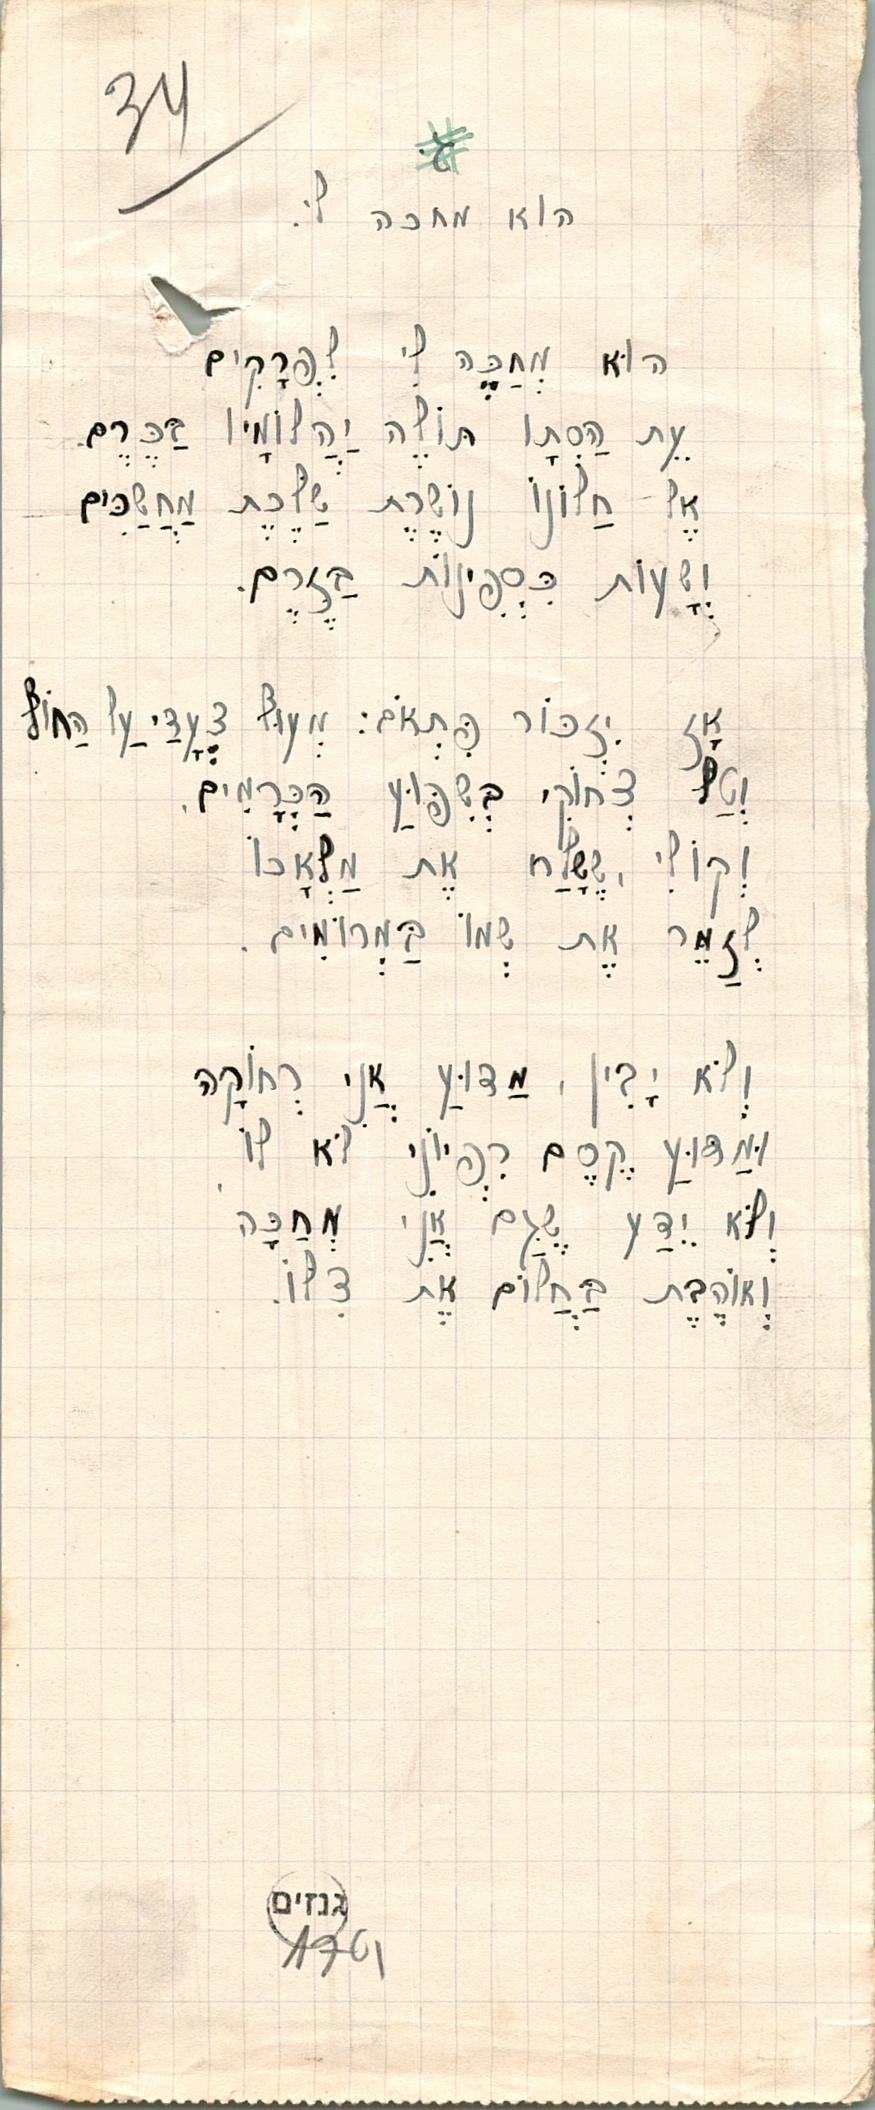 34
הוא מחכה לי.
הוּא מְחַכֶּה לִי לִפְרָקִים
עֵת הַסְּתָו תּוֹלֶה יַהֲלוֹמָיו בַּכֶּרֶם.
אֶל חַלּוֹנוֹ נוֹשֶׁרֶת שַׁלֶּכֶת מַחֲשַׁכִּים
וְשָׁעוֹת כִּסְפִינוֹת בַּזֶּרֶם.
אָז יִזְכּוֹר פִּתְאֹם: מְעוֹף צְעָדַי עַל הַחוֹל
וְטַל צְחוֹקִי בְּשִׁפּוּעַ הַכְּרָמִים.
וְקוֹלִי, שֶׁשָּׁלַח אֶת מַלְאָכוֹ
לְזַמֵּר אֶת שְׁמוֹ בַּמְּרוֹמִים.
וְלֹא יָבִין, מַדּוּעַ אֲנִי רְחוֹקָה
וּמַדּוּעַ קֶסֶם רִפְיוֹנִי לֹא לוֹ.
וְלֹא יֵדַע שֶׁגַּם אֲנִי מְחַכָּה
וְאוֹהֶבֶת בַּחֲלוֹם אֶת צִלּוֹ.
גנזים